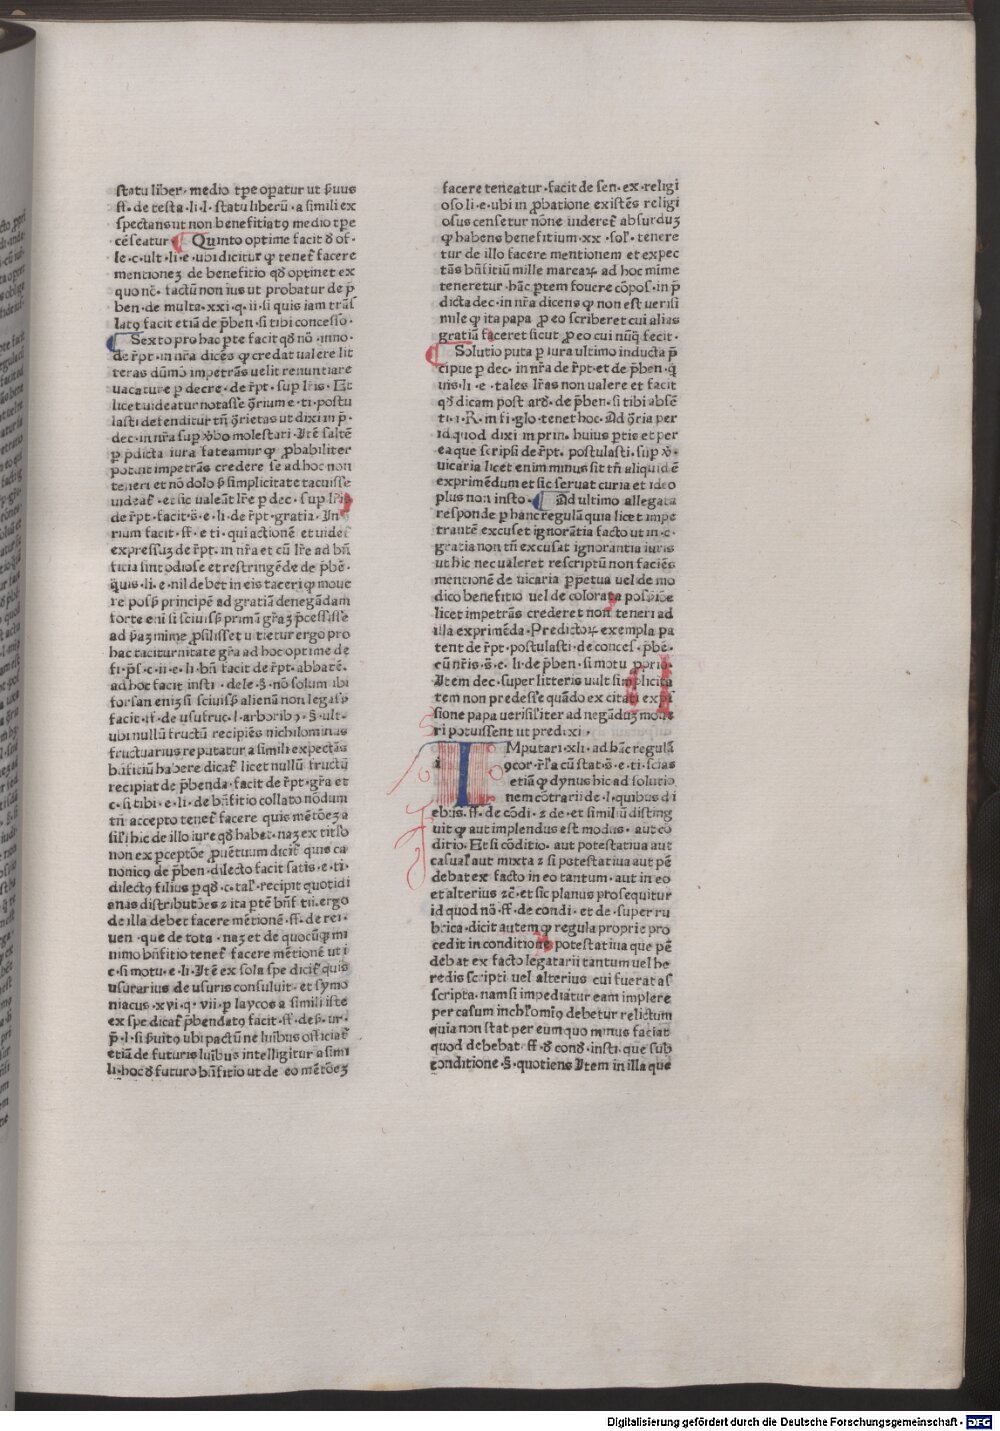 statu liber· medio tp̃e op̃atur ut p̃uus
ff· de testa·li·l· statu liberũ·a simili ex
spectans ut non benefitiatꝯ medio tp̃e
cẽseatur Quinto optime facit ꝺ of·
le·c·ult·li·e·ubi dicitur ꝙ tenet᷑ facere
mentionez de benefitio qd̃ optinet ex
quo nc̃·factũ non ius ut probatur de p̃
ben·de multa·xxi·q·ii·si quis iam trãs
latꝯ facit etiã de p̃ben·si tibi concesso·
Sexto pro hac pte facit qd̃ nõ·inno·
de r̃pt·in nr̃a dicẽs ꝙ credat ualere lit
teras dũmo impetrãs uelit renuntiare
uacature p decre·de r̃pt·sup lr̃is·Et
licet uideatur notasse 9̃rium e·ti·postu
lasti defenditur tñ 9̃rietas ut dixi in p̃·
dec·in nr̃a sup ũbo molestari·Itẽ saltẽ
p p̃dicta iura fateamur ꝙ ꝓbabiliter
potuit impetrãs credere se ad hoc non
teneri et nõ dolo p̃ simplicitate tacuisse
uideat᷑·et sic ualeãt lr̃e p dec·sup lr̃is
de r̃pt·facit·s̃·e·li·de r̃pt·gratia·In
rium facit·ff·e·ti·qui actionẽ et uidet᷑
expressuz de r̃pt·in nr̃a et cũ lr̃e ad bñ
ficia sint odiose et restringẽde de p̃bẽ·
q̃uis·li·e·nil debet in eis taceri ꝙ moue
re posꝫ principẽ ad gratiã denegãdam
forte eni si sciuisꝫ primã gr̃aꝫ p̃cessisse
ad p̃aꝫ mime ꝓsilisset utietur ergo pro
hac taciturnitate gr̃a ad hoc optime de
fi·p̃s·c·ii·e·li·bñ facit de r̃pt·abbatẽ·
ad hoc facit insti·de le·§·nõ solum ibi
forsan enīꝫ si sciuisꝫ alienã non legasꝫ
facit·ff·de usufruc·l·arboribꝯ·§·ult·
ubi nullũ fructũ recipiẽs nichilominus
fructuarius reputatur a simili expectãs
bñficiũ habere dicat᷑ licet nullũ fructũ
recipiat de p̃benda·facit de r̃pt·gr̃a et
c·si tibi·e·li·de bñfitio collato nõdum
tñ accepto tenet᷑ facere quis mẽtõeꝫ a
sili hic de illo iure qd̃ habet·naꝫ ex titĩo
non ex pceptõe ꝓuẽtuum dicit᷑ quis ca
nonicꝯ de p̃ben·dilecto facit satis·e·ti·
dilectꝯ filius p qd̃·c·tal᷑·recipit quotidi
anas distributões ꝛ ita ptẽ bñf tii·ergo
de illa debet facere mẽtionẽ·ff·de rei·
uen·que de tota·naꝫ et de quocũꝙ mi
nimo bñfitio tenet᷑ facere mẽtionẽ ut i
c·si motu·e·li·Itẽ ex sola spe dicit᷑ quis
usurarius de usuris consuluit·et symo
niacus·xvi·q·vii·p laycos a simili iste
ex spe dicat᷑ p̃bendatꝯ facit·ff·dep̃·ur·
p̃·l·si p̃uitꝯ ubi pactũ ne luĩbus officiat᷑
etiã de futuris luĩbus intelligitur a simi
li·hoc ꝺ futuro bñfitio ut de eo mẽtõeꝫ
facere teneatur·facit de sen·ex·religi
oso li·e·ubi in ꝓbatione existẽs religi
osus censetur nõne uideret᷑ absurduꝫ
ꝙ habens benefitium·xx·sol᷑·tenere
tur de illo facere mentionem et expec
tãs bñfitiũ mille marcaꝝ ad hoc mĩme
teneretur·hãc ptem fouere cõpos·in p̃
dicta dec·in nr̃a dicens ꝙ non est uerisi
mile ꝙ ita papa ꝓ eo scriberet cui alias
gratiã faceret sicut ꝓ eo cui nũq̃ fecit·
Solutio puta p iura ultimo inducta p̃
cipue p dec·in nr̃a de r̃pt·et de p̃ben·q̃
uis·li·e·tales lr̃as non ualere et facit
qd̃ dicam post ard·de p̃ben·si tibi absẽ
ti·i·R·in fi·glo·tenet hoc·Ad 9̃ria per
id quod dixi in prin·huius ptis et per
ea que scripsi de r̃pt·postulasti·sup ũ·
uicaria licet enim minus sit tñ aliquid ẽ
exprimẽdum et sic seruat curia et ideo
plus non insto· Ad ultimo allegata
responde p hanc regulã quia licet impe
trantẽ excuset ignorãtia facto ut in·c·
gratia non tñ excusat ignorantia iuris
ut hic nec ualeret rescriptũ non faciẽs
mentionẽ de uicaria ppetua uel de mo
dico benefitio uel de colorata possiõe
licet impetrãs crederet non teneri ad
illa exprimẽda·Predictoꝝ exempla pa
tent de r̃pt·postulasti·de conces·p̃bẽ·
cũ nr̃is·s̃·e·li·de p̃ben·si motu porio·
Item dec·super litteris uult simplicita
tem non predesse quãdo ex citati expr̃
sione papa uerisil᷑iter ad negãduꝫ moue
ri potuissent ut predixi·
IMputari·xli·ad hãc regulã
9cor·rl᷑a cũ stat·s̃·e·ti·scias
etiã ꝙ dynus hic ad solutio
nem cõtrarii de·l·quibus di
ebus·ff·de cõdi·ꝛ de·et similiũ disting
uit ꝙ aut implendus est modus·aut cõ
ditio·Et si cõditio·aut potestatiua aut
casual᷑ aut mixta ꝛ si potestatiua aut pẽ
debat ex facto in eo tantum·aut in eo
et alterius ꝛc̃·et sic planus prosequitur
id quod nõ·ff·de condi·et de·super ru
brica·dicit autem ꝙ regula proprie pro
cedit in conditione potestatiua que pẽ
debat ex facto legatarii tantum uel he
redis scripti uel alterius cui fuerat as
scripta·nam si impediatur eam implere
per casum inchlomiꝯ debetur relictum
quia non stat per eum quo minus faciat
quod debebat·ff·ꝺ cond·insti·que sub
conditione·§·quotiens Item in illa que
Digitalisierung gefördert durch die Deutsche Forschungsgemeinschaft · DFG